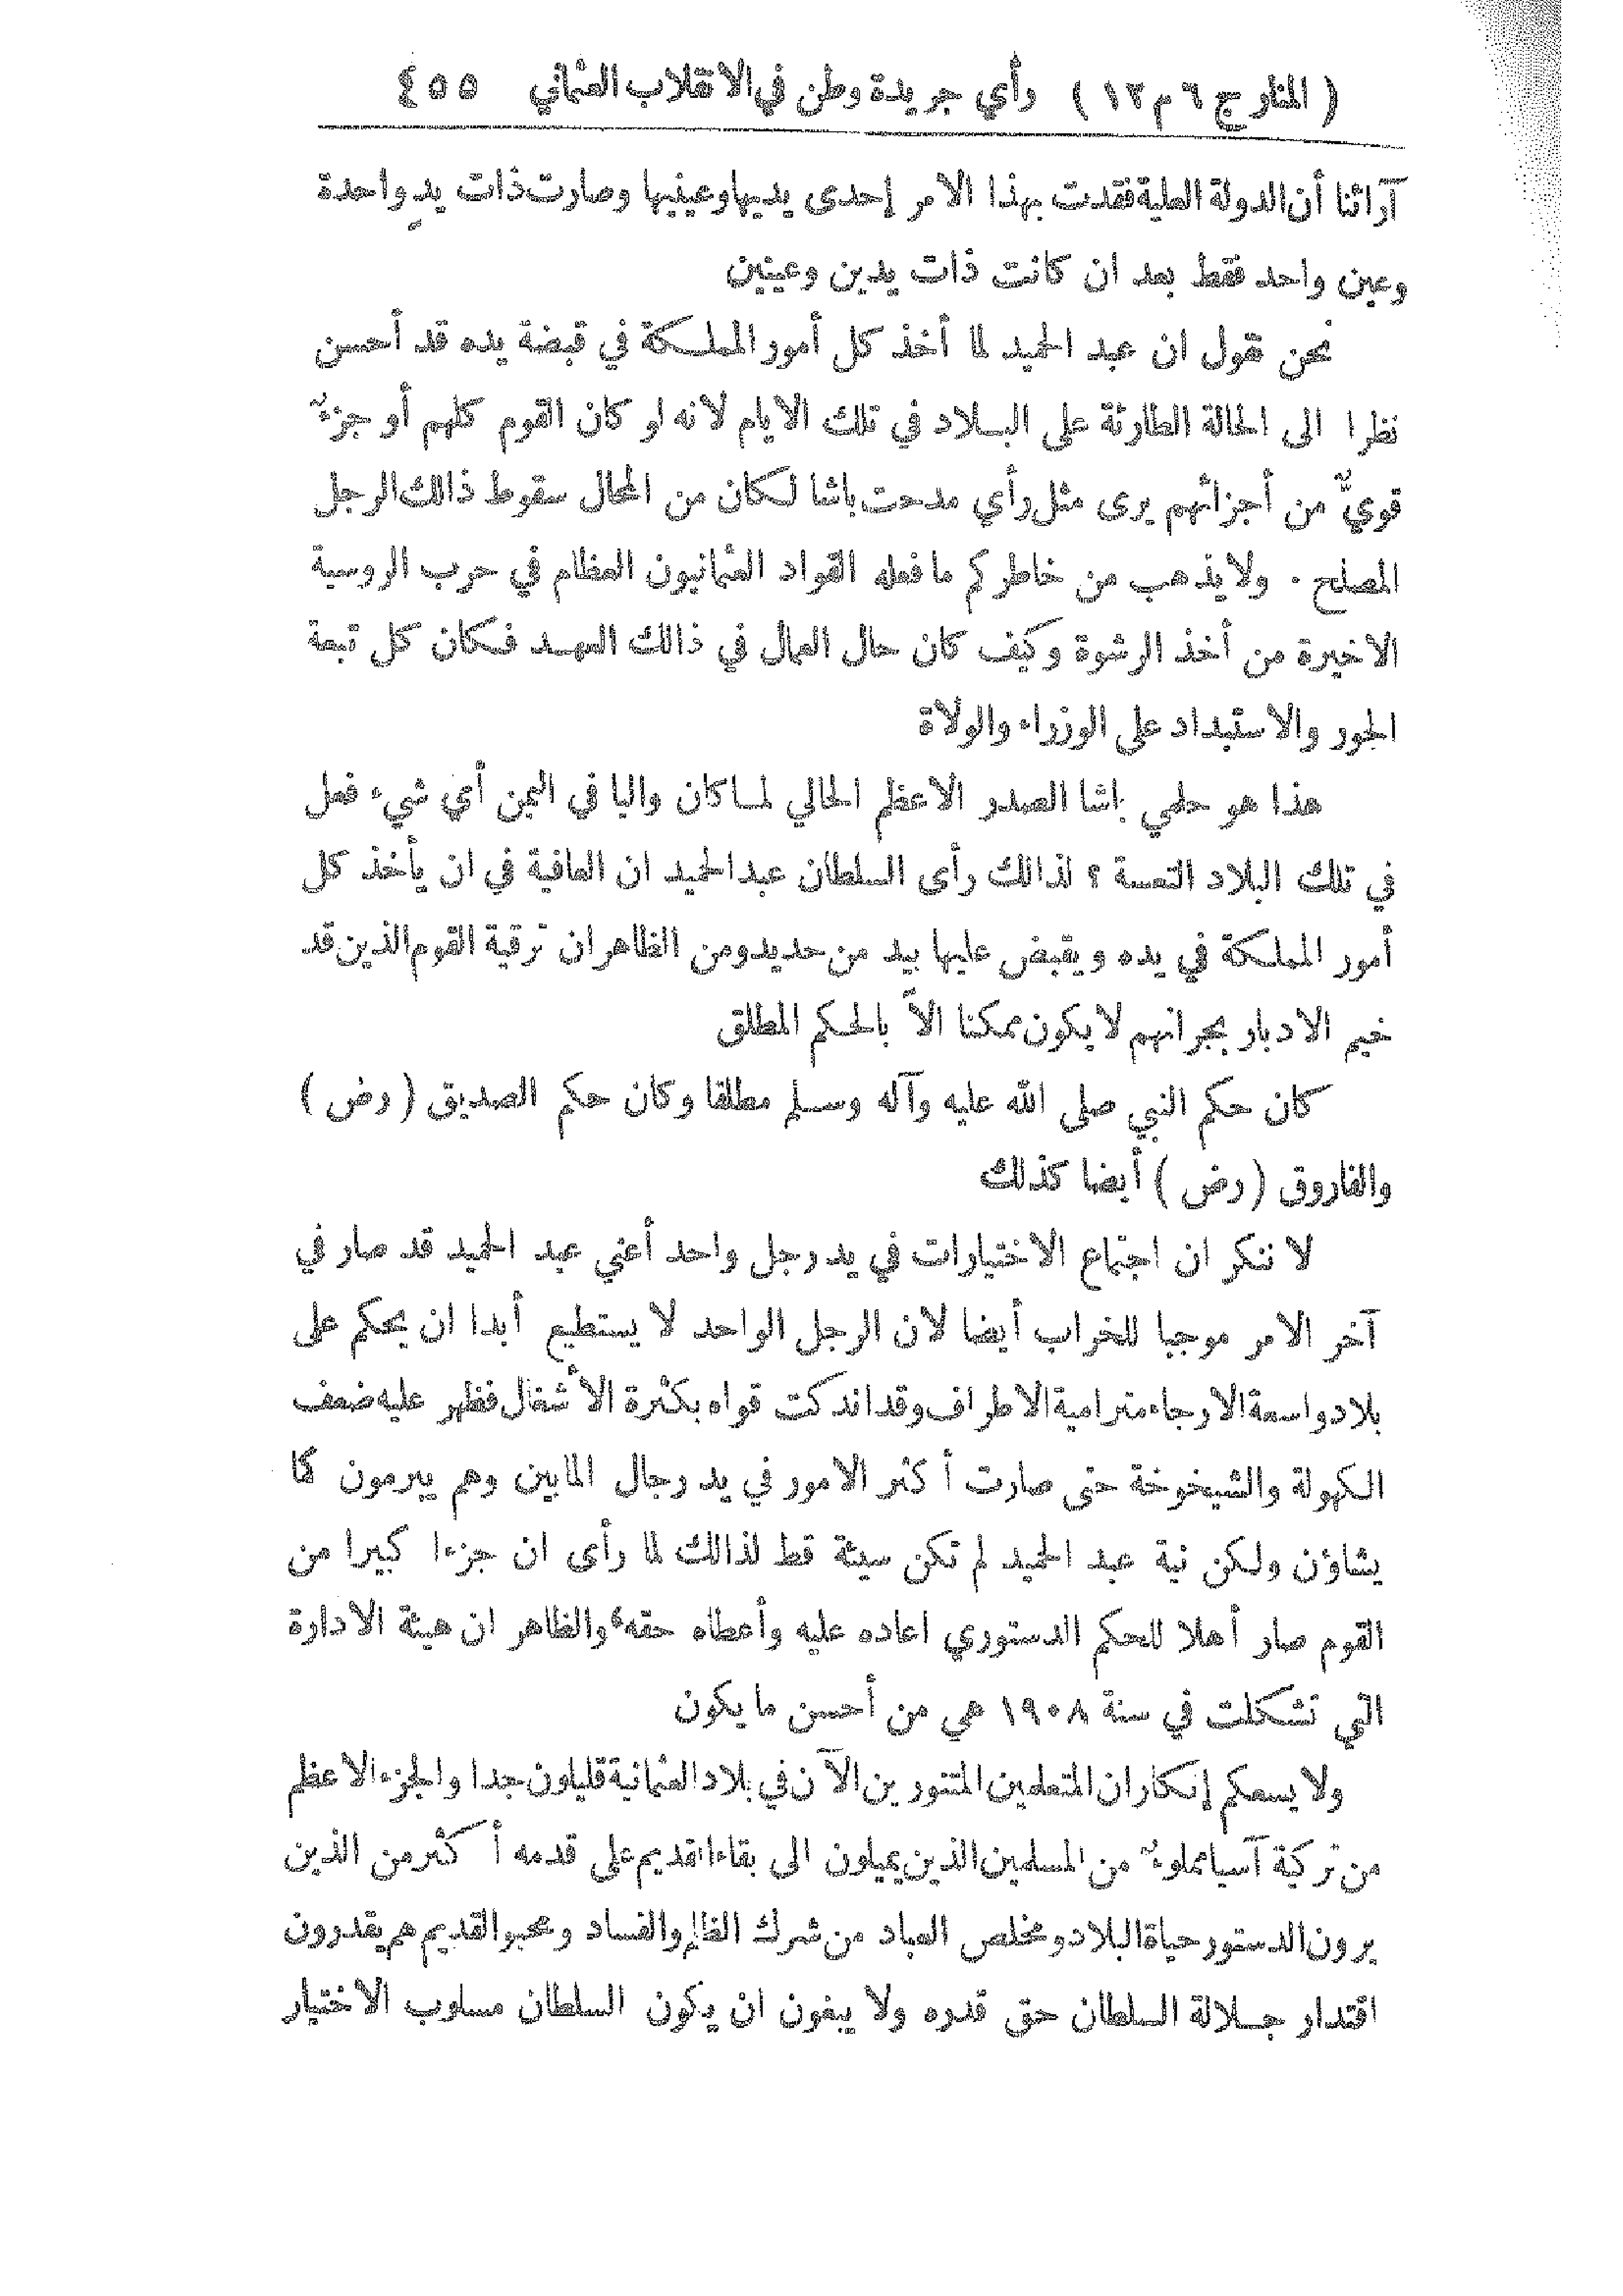 ( المنار ج ٦ م ١٢ ) رأي جريدة وطن في الانقلاب العثماني ٤٥٥
آرائنا أن الدولة العلية فقدت بهذا الامر إحدى يديها وعينيها وصارت ذات يدٍ واحدة
وعين واحد فقط بعد ان كانت ذات يدين وعينين
نحن نقول ان عبد الحميد لما أخذ كل أمور المملكة في قبضة يده قد أحسن
نظرا الى الحالة الطارئة على البلاد في تلك الايام لانه لو كان القوم كلهم أو جزءٌ
قويٌّ من أجزائهم يرى مثل رأي مدحت باشا لكان من المحال سقوط ذالك الرجل
المصلح . ولا يذهب من خاطركم ما فعله القواد العثمانيون العظام في حرب الروسية
الاخيرة من أخذ الرشوة وكيف كان حال العمال في ذالك العهد فكان كل تبعة
الجور والاستبداد على الوزراء والولاة
هذا هو حلمي باشا الصدر الاعظم الحالي لما كان واليا في اليمن أي شيء فعل
في تلك البلاد التعسة ؟ لذالك رأى السلطان عبد الحميد ان العافية في ان يأخذ كل
أمور المملكة في يده ويقبض عليها بيد من حديد ومن الظاهر ان ترقية القوم الذين قد
خيم الادبار بجرانهم لا يكون ممكنا الاّ بالحكم المطلق
كان حكم النبي صلى الله عليه وآله وسلم مطلقا وكان حكم الصديق ( رض )
والفاروق ( رض ) أيضا كذلك
لا ننكر ان اجتماع الاختيارات في يد رجل واحد أعني عبد الحميد قد صار في
آخر الامر موجبا للخراب أيضا لان الرجل الواحد لا يستطيع أبدا ان يحكم على
بلاد واسعة الارجاء مترامية الاطراف وقد اندكت قواه بكثرة الأشغال فظهر عليه ضعف
الكهولة والشيخوخة حتى صارت أكثر الامور في يد رجال المابين وهم يبرمون كما
يشاؤن ولكن نية عبد الحميد لم تكن سيئة قط لذالك لما رأى ان جزءا كبيرا من
القوم صار أهلا للحكم الدستوري اعاده عليه وأعطاه حقه، والظاهر ان هيئة الادارة
التي تشكلت في سنة ١٩٠٨ هي من أحسن ما يكون
ولا يسعكم إنكار ان المتعلمين المتنورين الآن في بلاد العثمانية قليلون جدا والجزء الاعظم
من تركية آسيا مملوءٌ من المسلمين الذين يميلون الى بقاء القديم على قدمه أكثر من الذين
يرون الدستور حياة البلاد ومخلص العباد من شرك الظلم والفساد ومحبو القديم هم يقدرون
اقتدار جلالة السلطان حق قدره ولا يبغون ان يكون السلطان مسلوب الاختيار